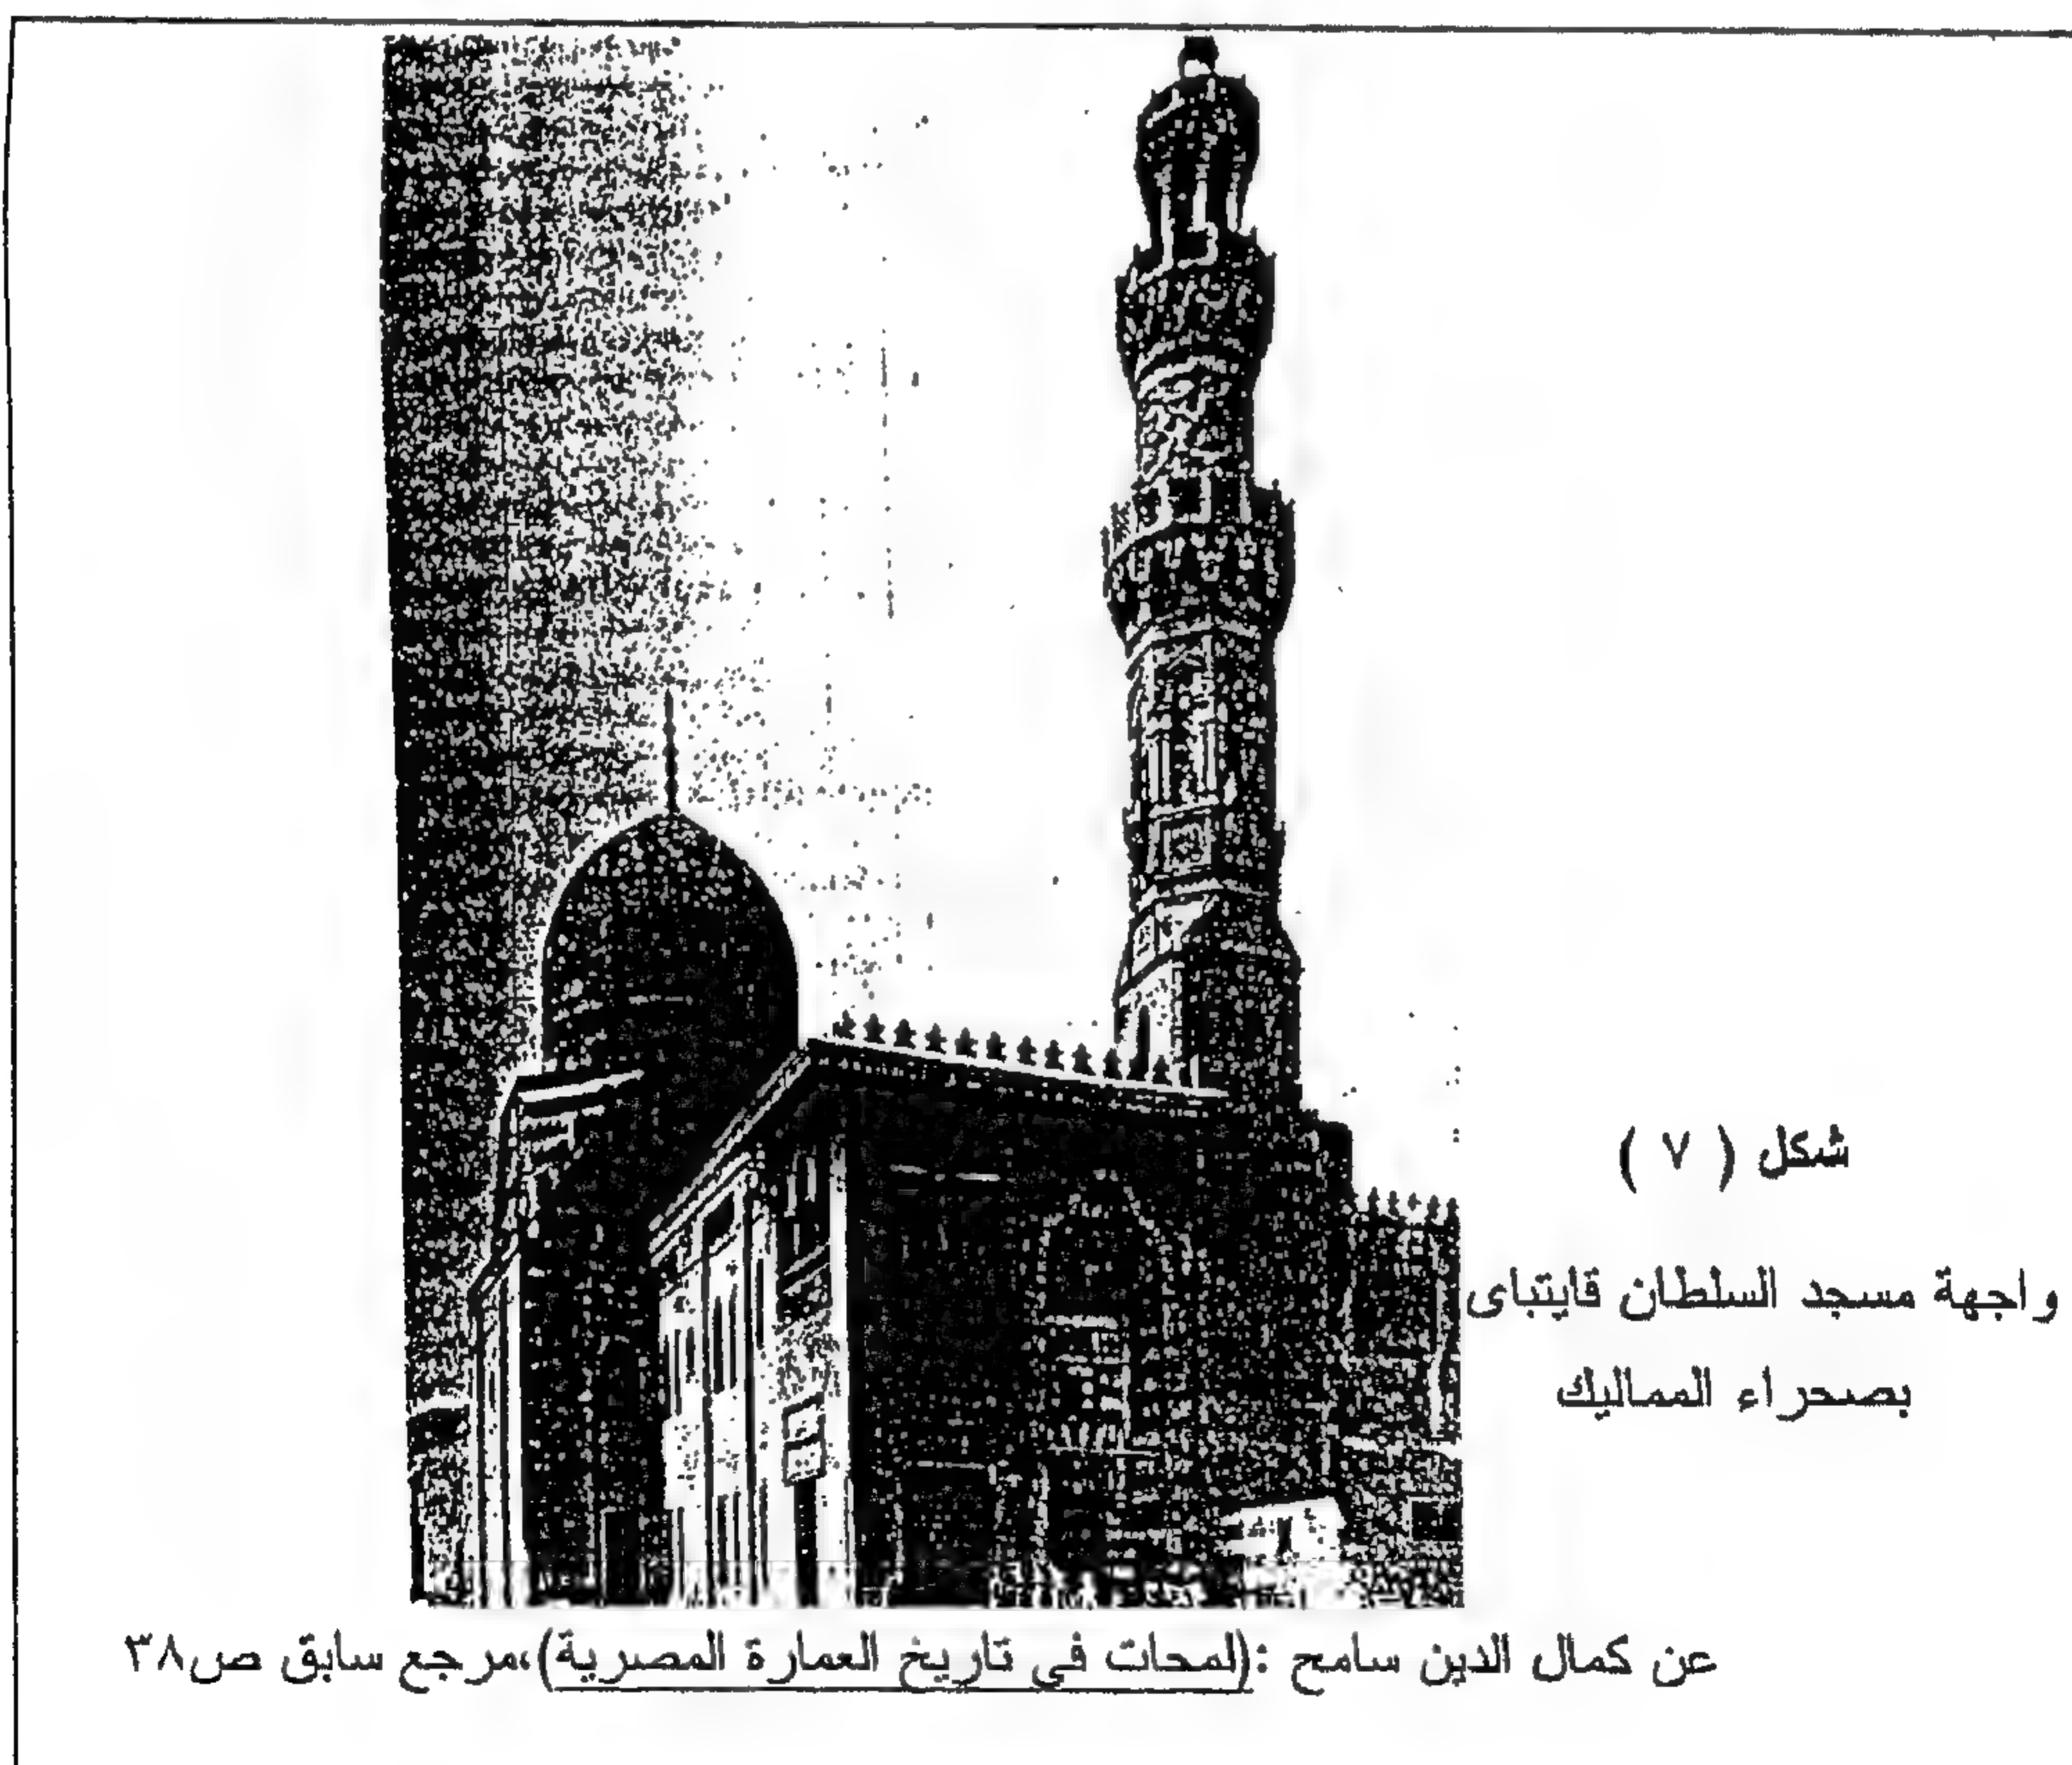 شكل ( ٧ )
واجهة مسجد السلطان قايتباى
بصحراء المماليك
عن كمال الدين سامح :(لمحات في تاريخ العمارة المصرية)،مرجع سابق ص٣٨